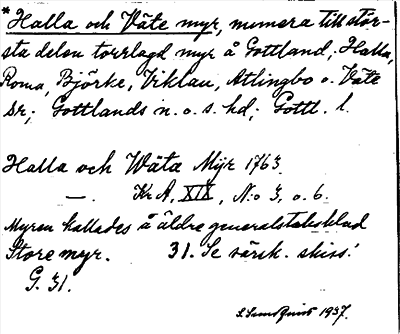 * Halla och Väte myr, numera till stör-
sta delen torrlagd myr å Gottland; Halla,
Roma, Björke, Viklau, Atlingbo o. Väte
snr; Gottlands n. o. s. hd; Gottl. l.
Halla och Wäte Myr 1763.
— . Kr A, XIX, N:o 3, o. 6.
Myren kallades å äldre generalstabsblad
Store myr. 31. Se särsk. skiss!
G. 31.
1937.